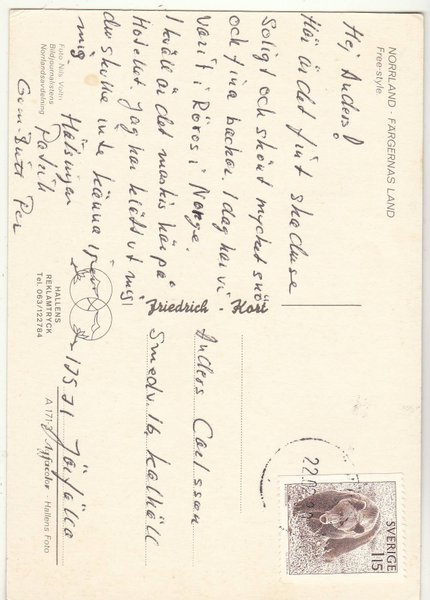 NORRLAND · FÄRGERNAS LAND
Free-style
Hej Anders!
Här är det fint ska du se
Soligt och skönt mycket snö
och fina backar. I dag har vi
varit i Röros i Norge.
I kväll är det maskis här på
Hotellet. Jag har klätt ut mig
du skulle inte känna igen
mig.
Hälsningar
Patrik
Gem- Britt Per
Foto Nils Voltir
Bildjournalistens
Norrlandsavdelning
"Friedrich - Kort
HALLENS
REKLAMTRYCK
Tel. 063/122784
Anders Carlsson
Smedv. 16, Kallhäll
175 71 Järfälla
A 171-J Hallens Foto
22.
SVERIGE
115